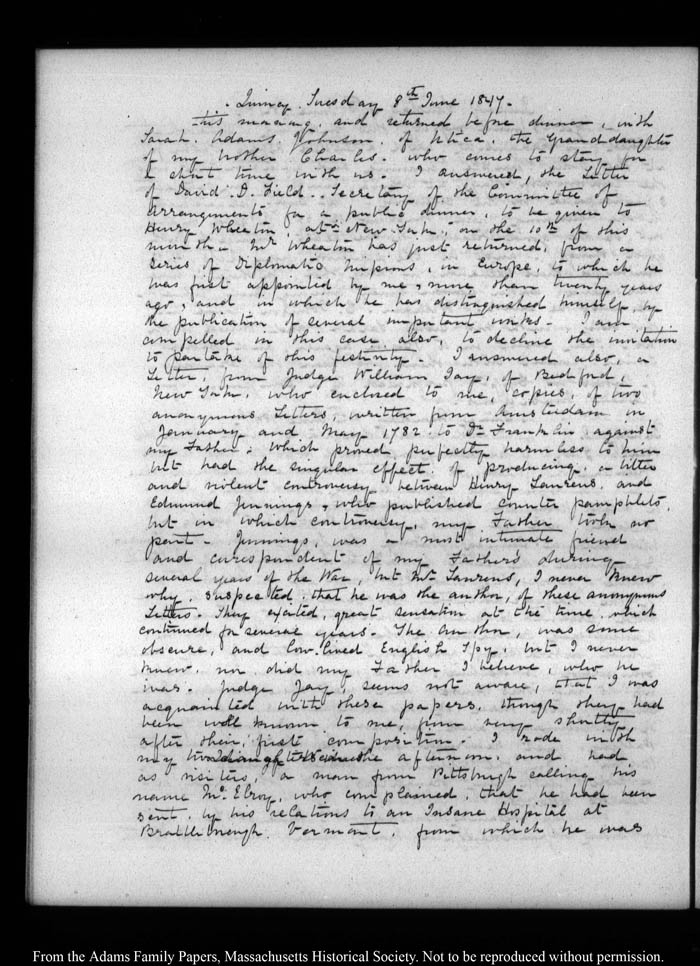 Quincy Tuesday 8th June 1847.
This morning, and returned before dinner, with
Sarah Adams Johnson, of Utica, the Granddaughter
of my brother Charles, who comes to stay for
a short time with us. I answered, the Letter
of David D. Field, Secretary of the Committee of
arrangements for a public dinner, to be given to
Henry Wheaton, at New York, on the 10th of this
month. Mr Wheaton has just returned, from a
series of Diplomatic missions, in Europe, to which he
was first appointed by me, more than twenty years
ago, and in which he has distinguished himself, by
the publication of several important works. I am
compelled in this case also, to decline the invitation
to partake of this festivity. I answered also, a
Letter, from Judge William Jay, of Bedford,
New York, who enclosed to me, copies, of two
anonymous Letters, written from Amsterdam in
January and May 1782 to Dr Franklin, against
my Father; which proved perfectly harmless to him
but had the singular effect, of producing, a bitter
and violent controversy between Henry Laurens, and
Edmund Jennings, who published counter pamphlets,
but in which controversy, my Father took no
part. Jennings, was a most intimate friend
and correspondent of my Father's during
several years of the War, but Mr Laurens, I never knew
why, suspected that he was the author, of these anonymous
Letters. They excited, great sensation at the time, which
continued for several years. The author, was some
obscure, and low-lived English Spy, but I never
knew, nor did my Father I believe, who he
was. Judge Jay, seems not aware, that I was
acquainted with these papers, though they had
been well known to me, from very shortly
after their first composition. I rode with
my two the afternoon, and had
as visitors, a man from Pittsburgh calling his
name McElroy, who complained, that he had been
sent, by his relations to an Insane Hospital at
Brattleborough, Vermont, from which he was
From the Adams Family Papers, Massachusetts Historical Society. Not to be reproduced without permission.